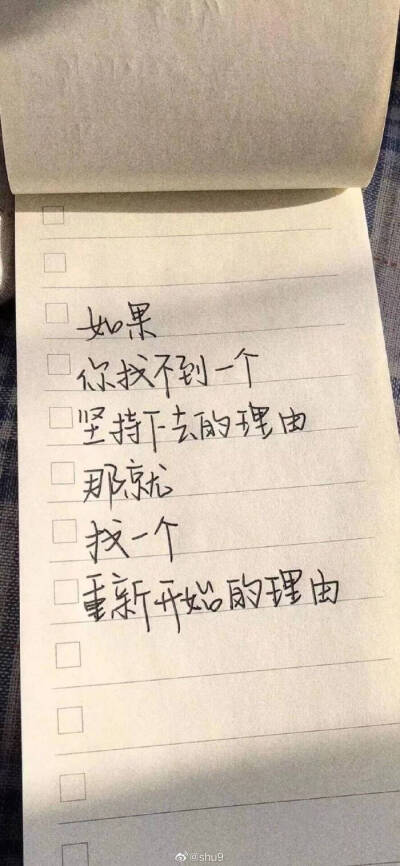 如果
你找不到一个
坚持下去的理由
那就
找一个
重新开始的理由
@shu9